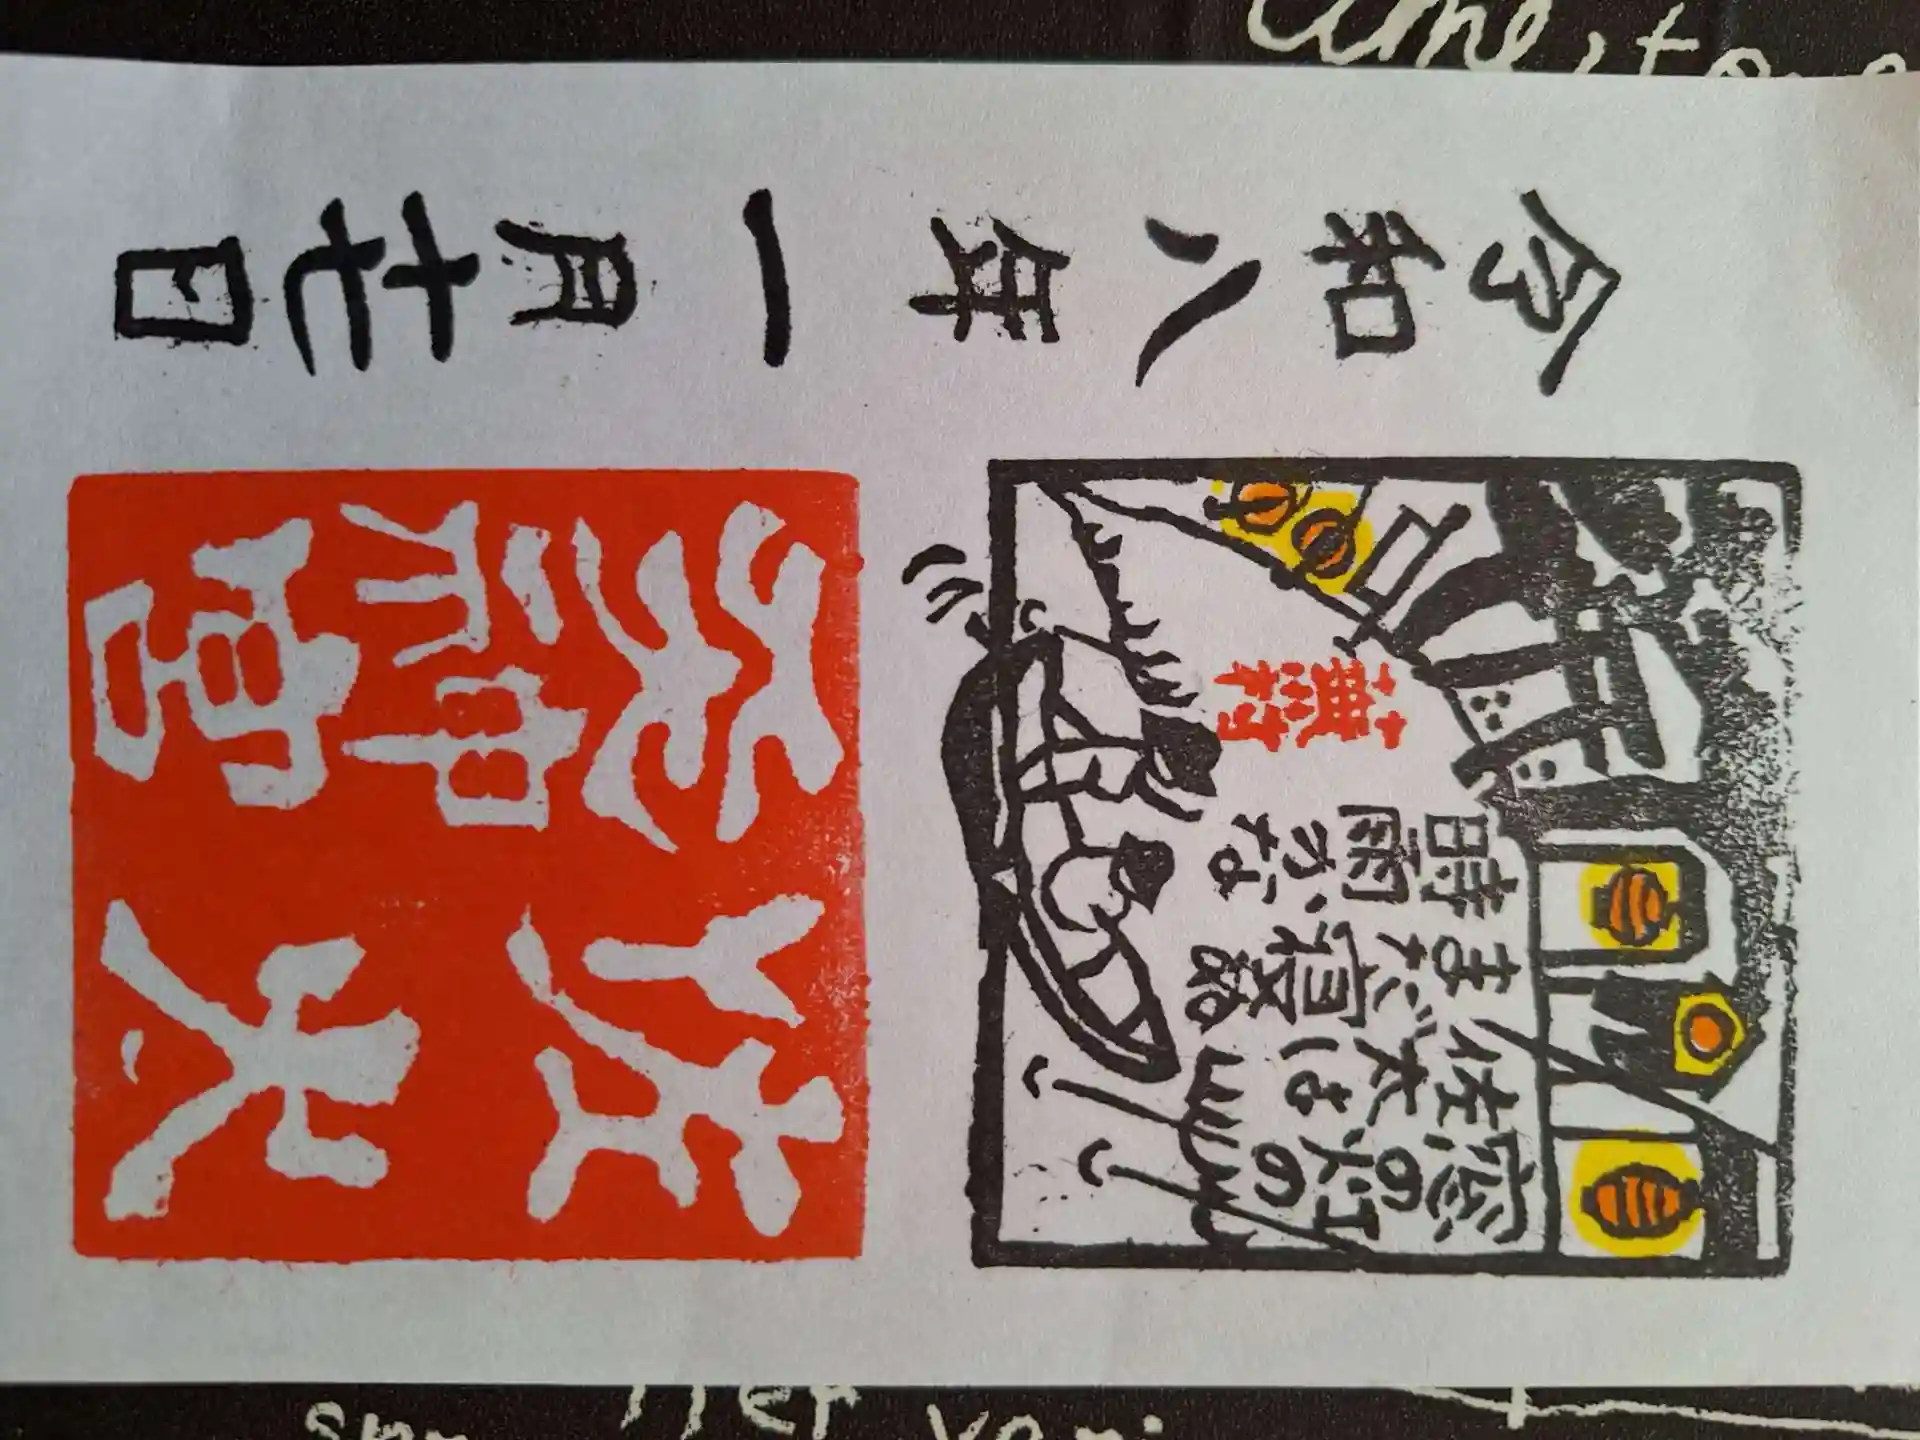 窓の灯の
佐太は
まだ寝ぬ
時雨かな
蕪村
佐太
天神宮
令和八年一月十七日